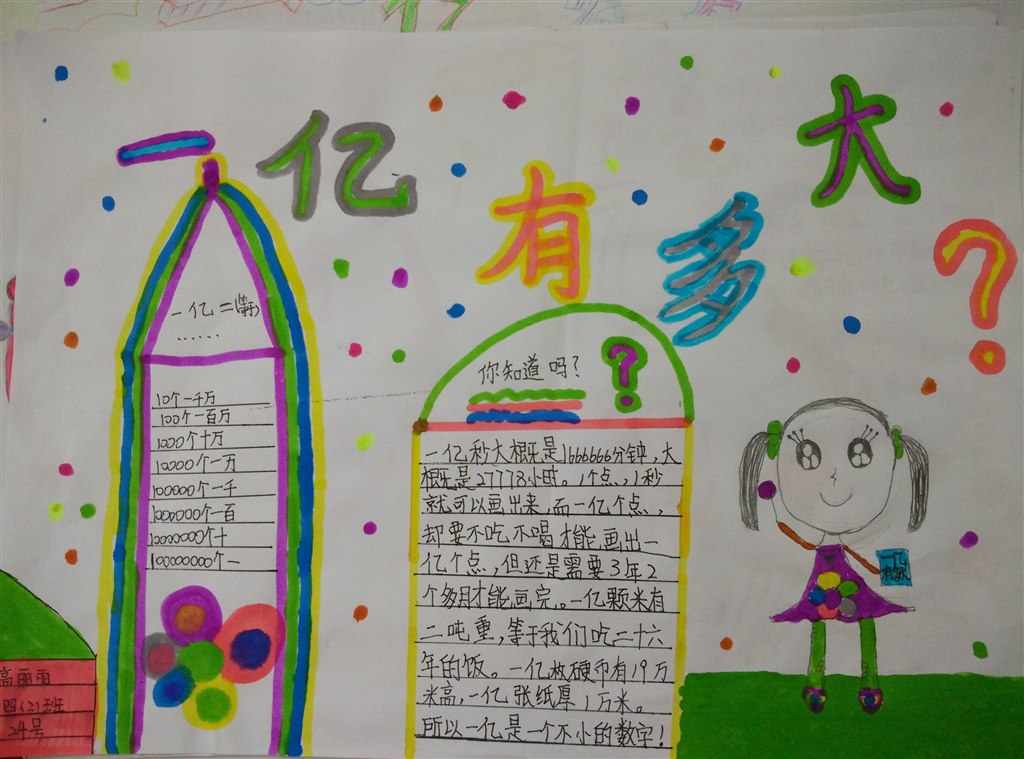 一亿有多大?
一亿=(等于)
......
10个一千万
100个一百万
1000个十万
10000个一万
100000个一千
1000000个一百
10000000个十
100000000个一
你知道吗?
?
一亿秒大概是1666666分钟,大
概是27778小时。1个点,1秒
就可以画出来,而一亿个点,
却要不吃、不喝才能画出一
亿个点,但还是需要3年2
个多月才能画完。一亿颗米有
二吨重,等于我们吃二十六
年的饭。一亿枚硬币有19万
米高,一亿张纸厚1万米。
所以一亿是一个不小的数字!
一亿
高丽雨
四(2)班
24号